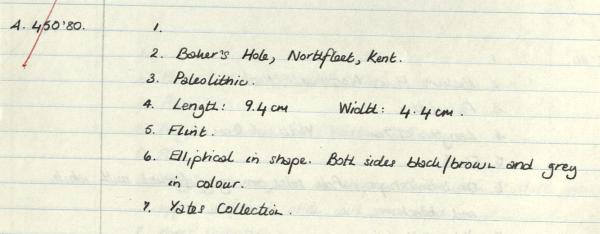 A. 450'80. 1.
2. Baker's Hole, Northfleet, Kent.
3. Paleolithic.
4. Length: 9.4 cm Width: 4.4 cm.
5. Flint.
6. Elliptical in shape. Both sides black/brown and grey
in colour.
7. Yates Collection.